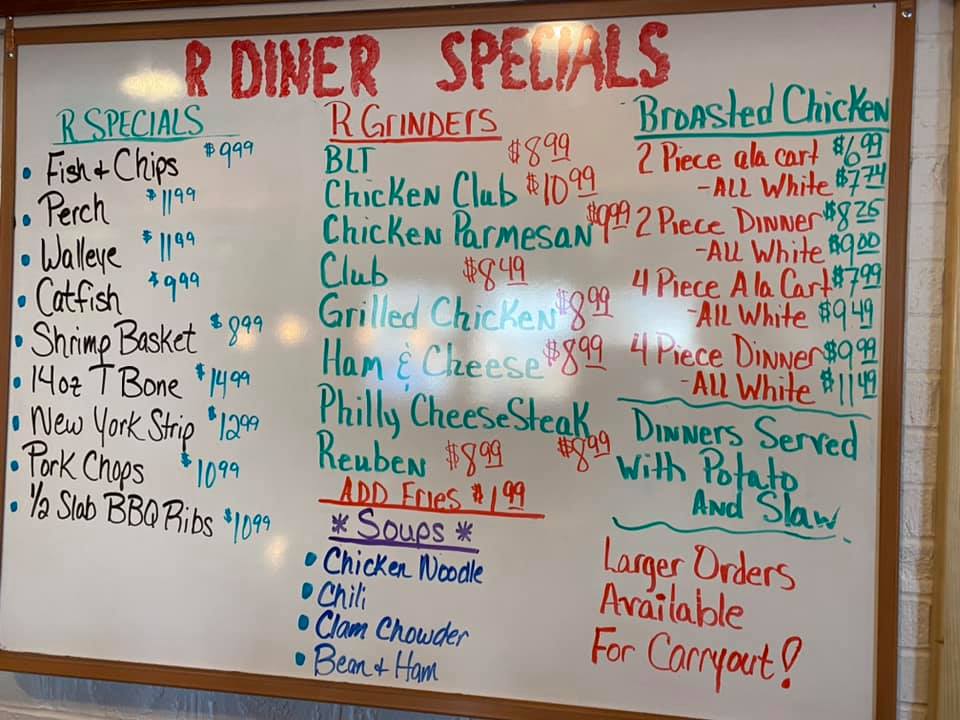 R DINER SPECIALS
R SPECIALS
• Fish + Chips $9.99
• Perch $11.99
• Walleye $11.99
• Catfish $9.99
• Shrimp Basket $8.99
• 14oz T Bone $14.99
• New York Strip $12.99
• Pork Chops $10.99
• 1/2 Slab BBQ Ribs $10.99
R GRINDERS
BLT $8.99
Chicken Club $10.99
Chicken Parmesan $9.99
Club $8.49
Grilled Chicken $8.99
Ham & Cheese $8.99
Philly CheeseSteak $8.99
Reuben $8.99
ADD Fries $1.99
* Soups *
• Chicken Noodle
• Chili
• Clam Chowder
• Bean + Ham
Broasted Chicken
2 Piece ala cart $6.99
-ALL White $7.74
2 Piece Dinner $8.25
-ALL White $9.00
4 Piece Ala Cart $7.99
-ALL White $9.49
4 Piece Dinner $9.99
-ALL White $11.49
Dinners Served
With Potato
And Slaw
Larger Orders
Available
For Carryout!